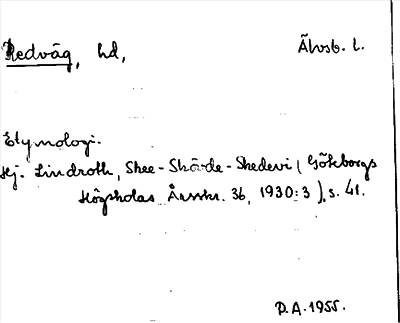 Redväg, hd, Älvsb. l.
Etymologi.
Hj. Lindroth, Skee-Skövde-Skedevi (Göteborgs
Högskolas Årsskr. 36, 1930:3), s. 41.
P.A. 1955.